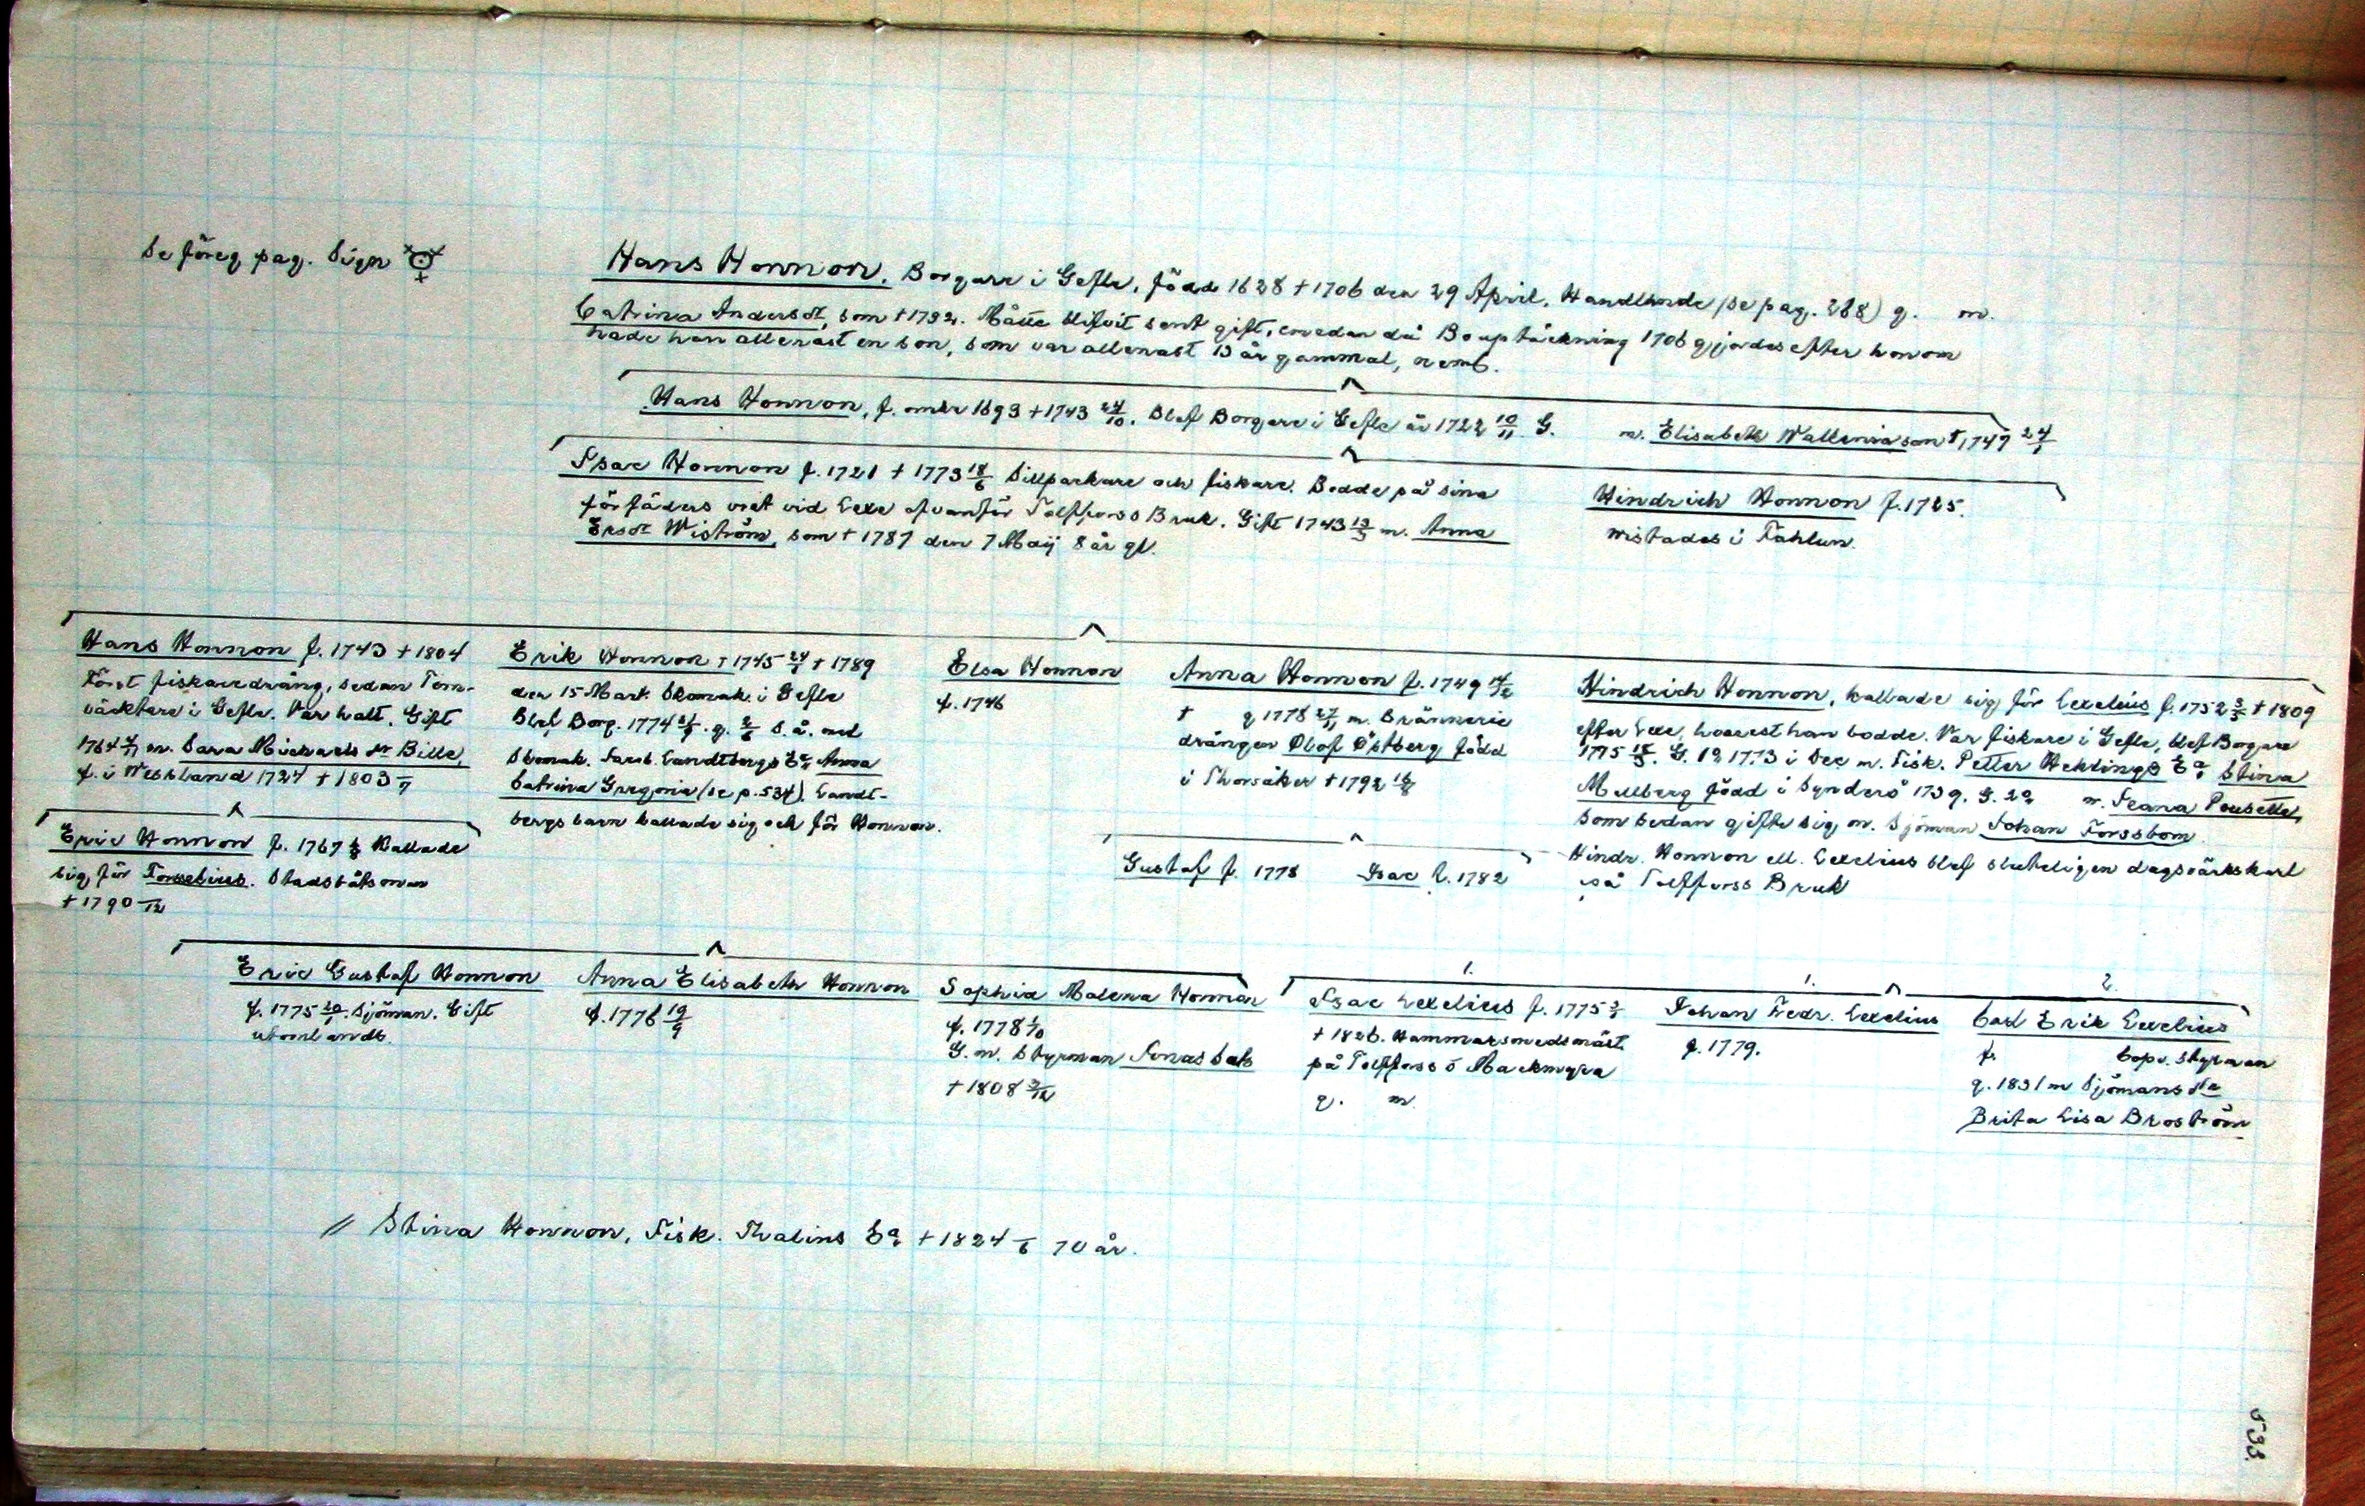 Se föreg pag. Sign
Hans Honnon. Borgare i Gefle, född 1628 † 1706 den 29 April. Handlande (se pag. 288) g. m.
Catrina Andersdr, som † 1732. Måtte blifvit sent gift, emedan då Bouptäckning 1706 gjordes efter honom
hade han allenast en son, som var allenast 13 år gammal, neml.
Hans Honnon, f. omkr 1693 † 1743 24/10. Blef Borgare i Gefle år 1722 10/11. G. m. Elisabeth Wallenia som † 1747 24/1
Isac Honnon f. 1721 † 1773 18/6 Sillpackare och fiskare. Bodde på sina
förfäders vret vid Lexe ofvanför Tolffors Bruk. Gift 1743 13/3 m. Anna
Ersdr Wiström, som † 1787 den 7 Maij 8 år gl.
Hindrich Honnon f. 1725.
vistades i Fahlun.
Hans Honnon f. 1743 † 1804
Först fiskaredräng, sedan Torn-
väcktare i Gefle. Var halt. Gift
1764 m. Sara Michaels dr Bille,
f. i Westland 1724 † 1803
Eric Honnon f. 1767 Kallade
sig för Forselius. Stadsbåtsman
† 1790 /12
Erik Honnon f 1745 24/1 † 1789
den 15 Mart. Skomak. i Gefle
Blef Borg. 1774 g. 2/6 s. å. med
Skomak. Jacob Landtbergs Ea Anna
Catrina Gregoria (se p. 534). Landt-
bergs barn kallade sig och för Honnon.
Elsa Honnon
f. 1746
Anna Honnon f. 1749
† g 1778 27/11 m. Bränneri
drängen Olof Östberg född
i Thorsåker † 1792
Gustaf f. 1778 Isac f. 1782
Hindrich Honnon, kallade sig för Lexelius f. 1752 3/3 † 1809
efter Lexe, hvarest han bodde. Var fiskare i Gefle, blef Borgare
1775. G. 1o 1773 i Dec m. Fisk. Petter Heklings Ea Stina
Mellberg född i Synderö 1739. G. 2o m. Jeana Pousette,
som sedan gifte sig m. Sjöman Johan Forssbom.
Hindr. Honnon ell. Lexelius blef sluteligen dagsverkskarl
på Tolffors Bruk
Eric Gustaf Honnon
f. 1775 20/1. Sjöman. Gift
utomlands.
Anna Elisabeth Honnon
f. 1776 19/9
Sophia Malena Honnon
f. 1778 1/10
G. m. Styrman Jonas
† 1808 3/12
1.
Isac Lexelius f. 1775
† 1826. Hammarsmedsmäst.
på Tolffors o Mackmyra
g. m.
1.
Johan Fredr. Lexelius
f. 1779.
2.
Carl Erik Lexelius
f. Copv. Styrman
g. 1831 m Sjömans dr
Brita Lisa Broström
// Stina Honnon, Fisk. Thalins Ea † 1824 /6 70 år.
533.